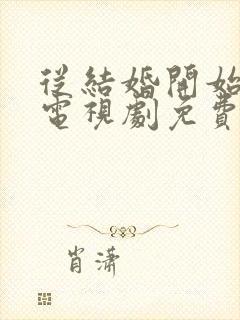 從結婚開始
電視劇免費
肖瀟